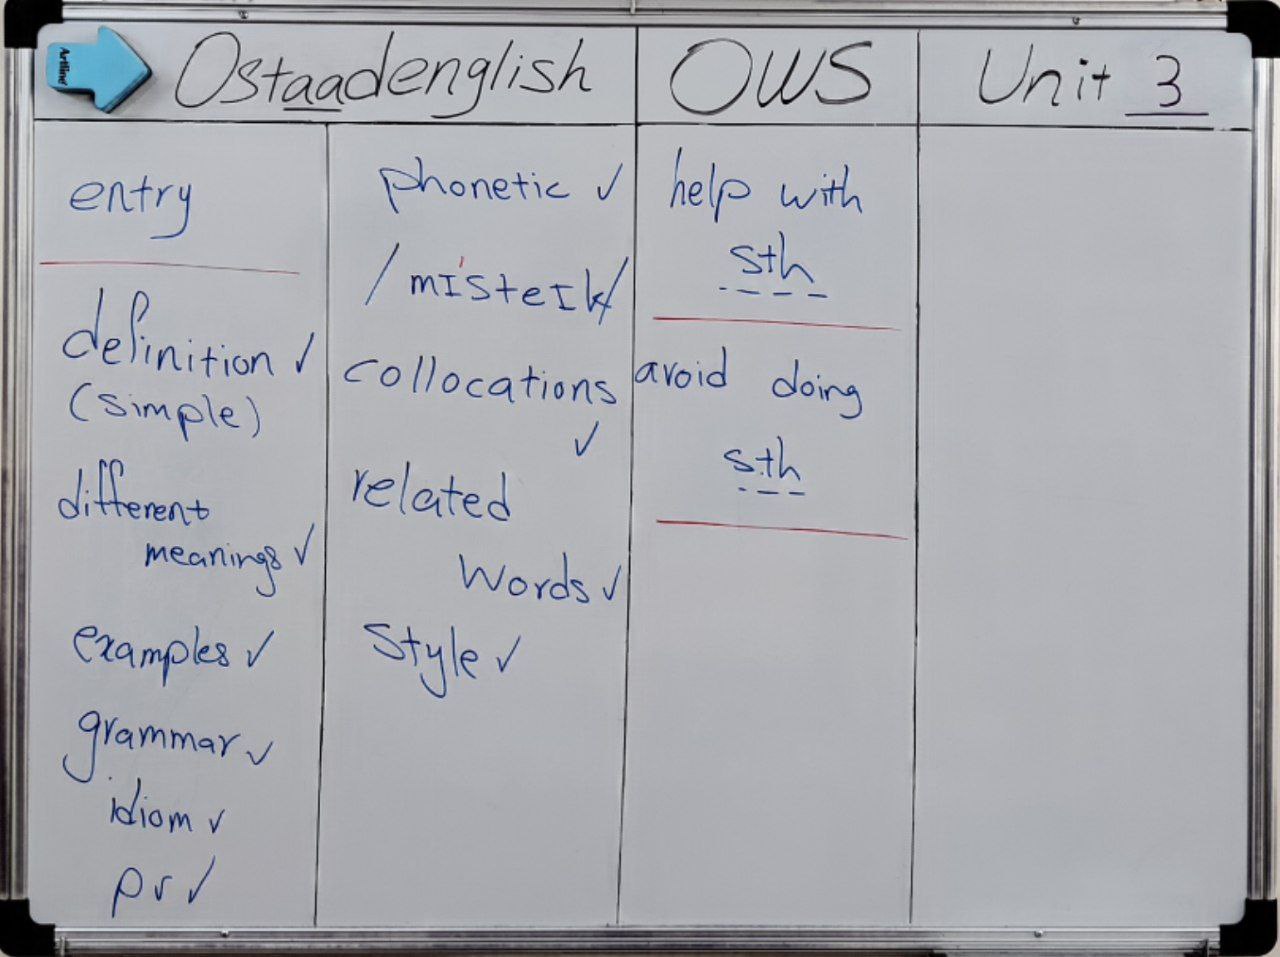 Artline
Ostaadenglish
OWS
Unit 3
entry
definition ✓
(simple)
different
meanings ✓
examples ✓
grammar ✓
idiom ✓
pr ✓
phonetic ✓
/mɪ'steɪk/
collocations
✓
related
words ✓
style ✓
help with
sth
avoid doing
sth